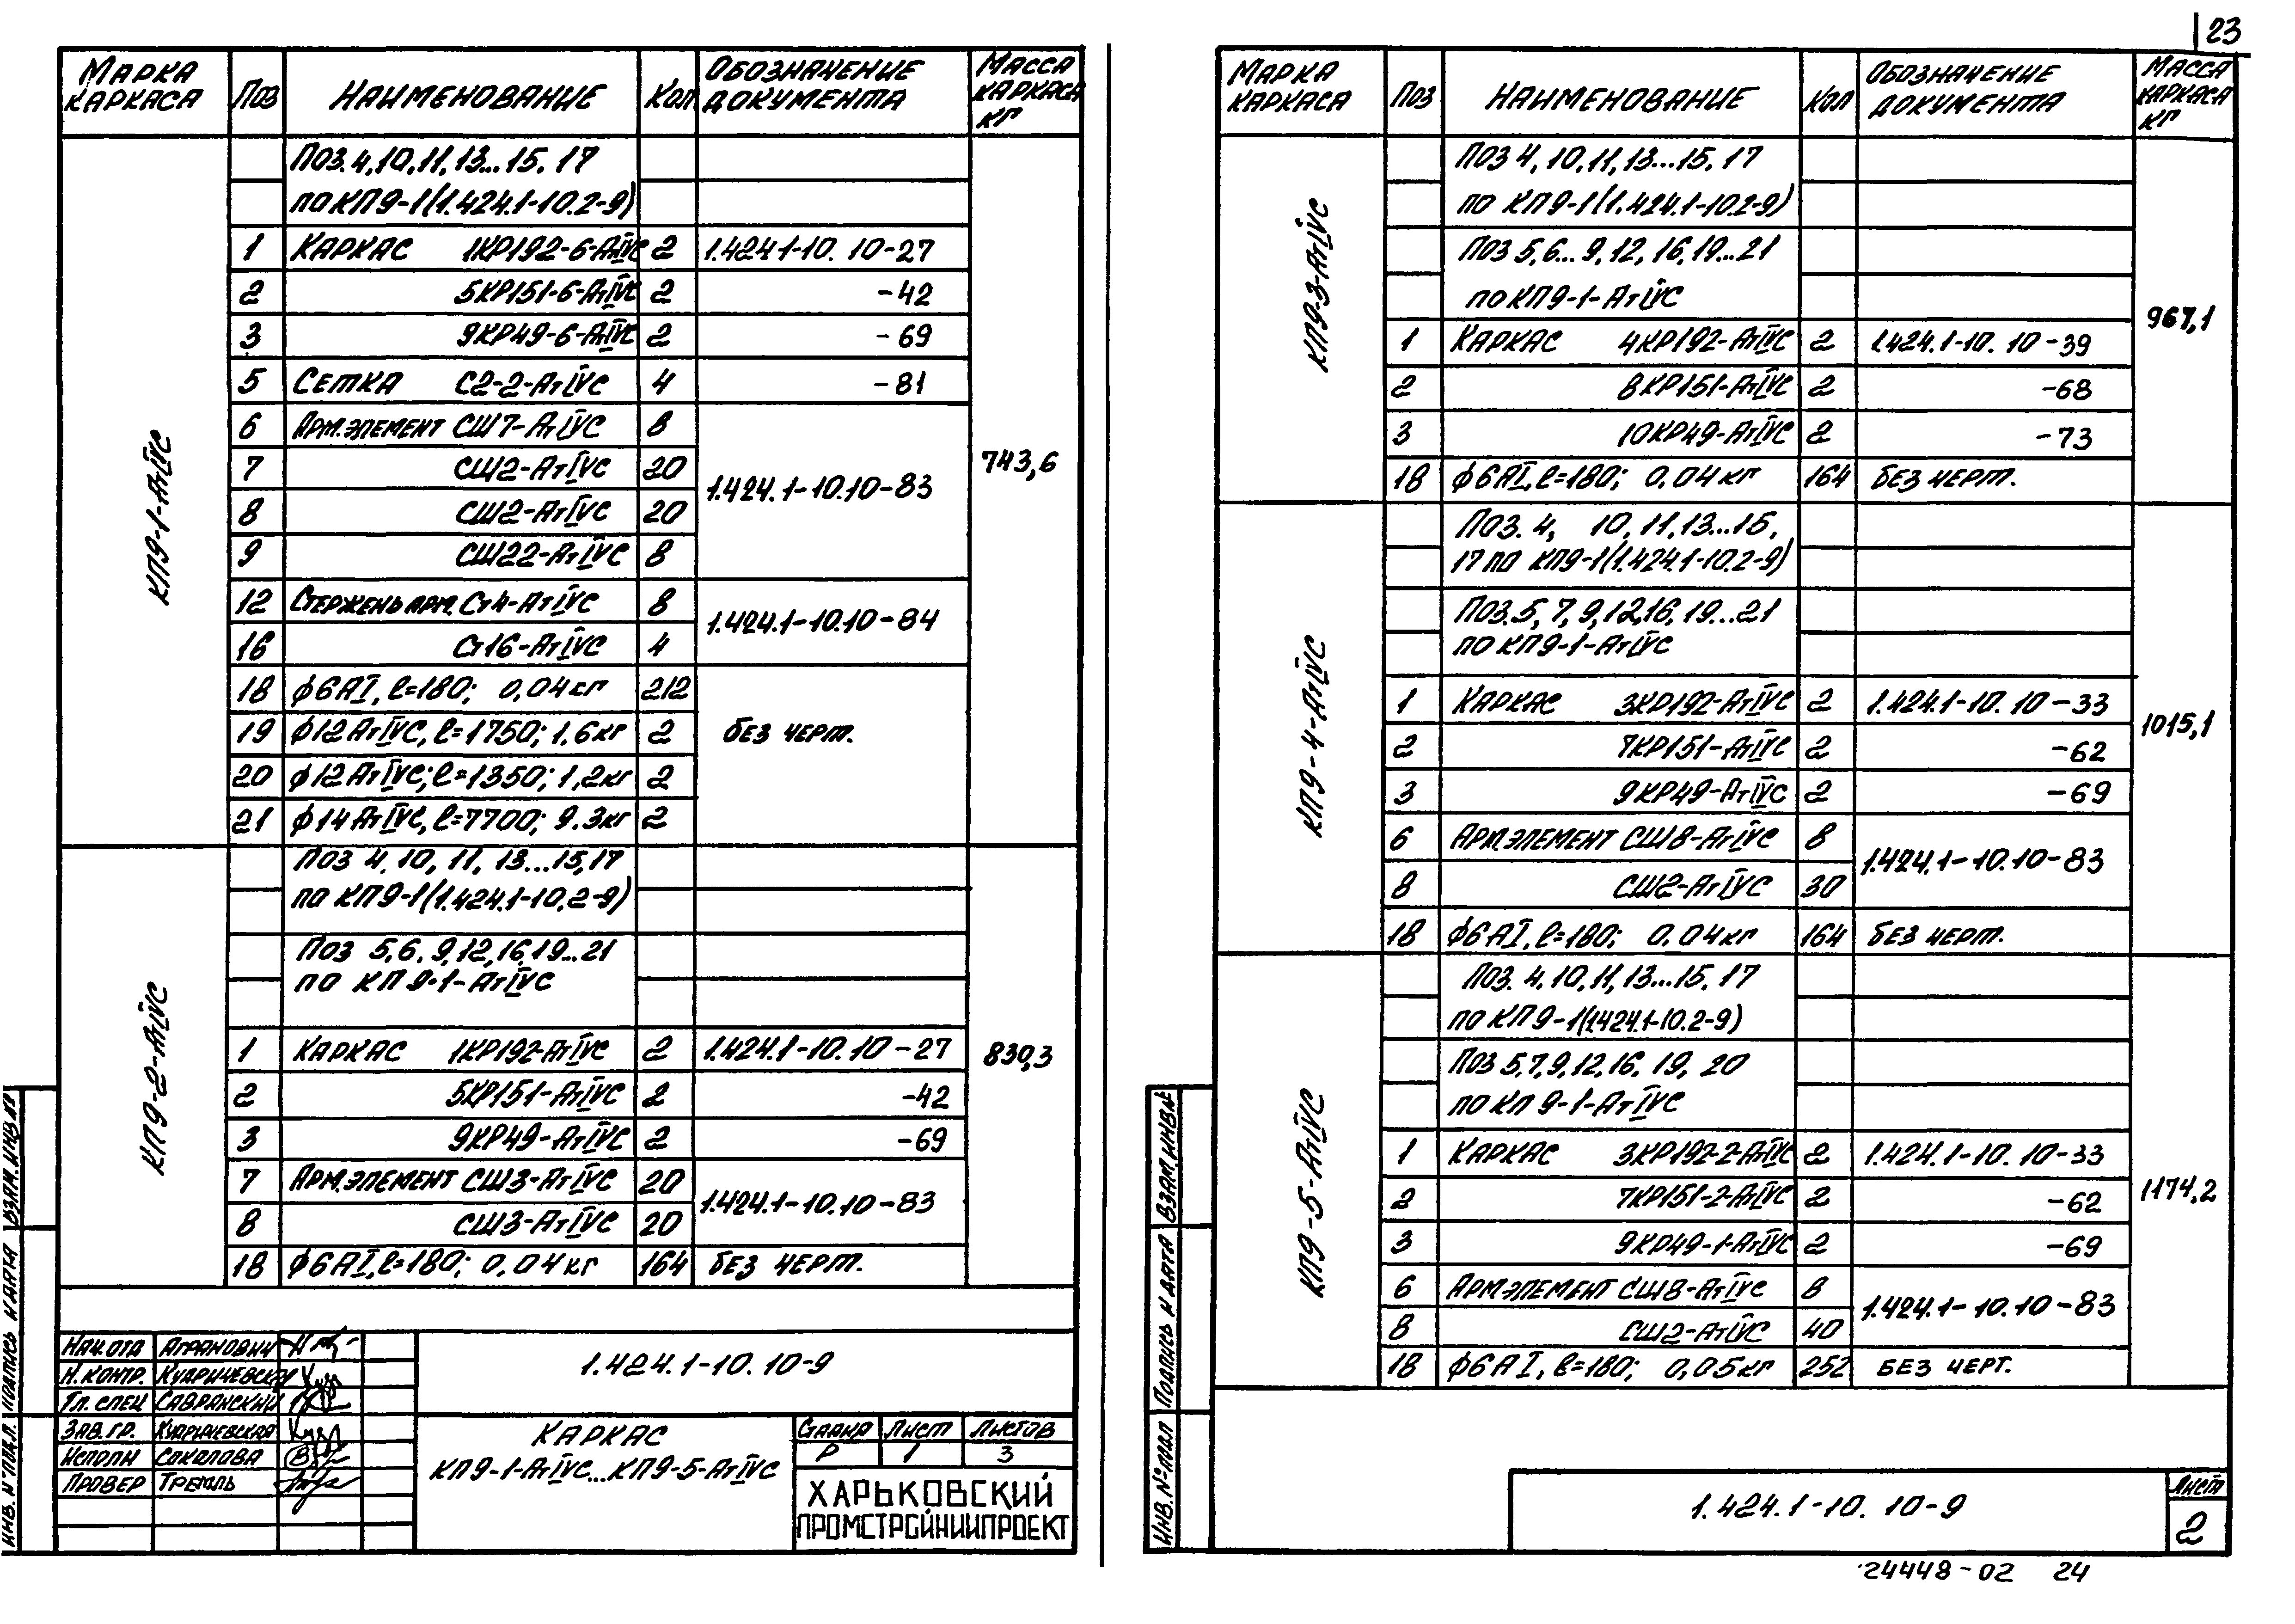 23
Марка каркаса | Поз | Наименование | Кол | Обозначение документа | Масса каркаса кг
КП9-1-АтIVС
743,6
Поз. 4, 10, 11, 13...15, 17
по КП9-1(1.424.1-10.2-9)
1 | Каркас 1КР192-6-АтIVС | 2 | 1.424.1-10. 10-27
2 | 5КР151-6-АтIVС | 2 | -42
3 | 9КР49-6-АтIVС | 2 | -69
5 | Сетка С2-2-АтIVС | 4 | -81
6 | Арм.элемент СШ7-АтIVС | 8 | 1.424.1-10.10-83
7 | СШ2-АтIVС | 20
8 | СШ2-АтIVС | 20
9 | СШ22-АтIVС | 8
12 | Стержень арм. Ст4-АтIVС | 8 | 1.424.1-10.10-84
16 | Ст16-АтIVС | 4
18 | ϕ6АI, ℓ=180; 0,04кг | 212 | без черт.
19 | ϕ12АтIVС, ℓ=1750; 1.6кг | 2
20 | ϕ12АтIVС; ℓ=1350; 1,2кг | 2
21 | ϕ14АтIVС, ℓ=7700; 9.3кг | 2
КП9-2-АтIVС
830,3
Поз 4, 10, 11, 13...15, 17
по КП9-1(1.424.1-10.2-9)
Поз 5,6, 9,12,16,19...21
по КП9-1-АтIVС
1 | Каркас 1КР192-АтIVС | 2 | 1.424.1-10.10-27
2 | 5КР151-АтIVС | 2 | -42
3 | 9КР49-АтIVС | 2 | -69
7 | Арм.элемент СШ3-АтIVС | 20 | 1.424.1-10.10-83
8 | СШ3-АтIVС | 20
18 | ϕ6АI, ℓ=180; 0,04кг | 164 | без черт.
Нач.отд | Агранович
Н.контр. | Кудричевская
Гл.спец | Савранский
Зав.гр. | Кудричевская
Исполн | Соколова
Провер | Тремль
1.424.1-10. 10-9
Каркас
КП9-1-АтIVС...КП9-5-АтIVС
Стадия | Лист | Листов
Р | 1 | 3
ХАРЬКОВСКИЙ
ПРОМСТРОЙНИИПРОЕКТ
Инв. № подл. | Подпись и дата | Взам. инв №
Марка каркаса | Поз | Наименование | Кол | Обозначение документа | Масса каркаса кг
КП9-3-АтIVС
967,1
Поз 4, 10, 11, 13...15, 17
по КП9-1(1.424.1-10.2-9)
Поз 5, 6...9, 12, 16, 19...21
по КП9-1-АтIVС
1 | Каркас 4КР192-АтIVС | 2 | 1.424.1-10. 10-39
2 | 8КР151-АтIVС | 2 | -68
3 | 10КР49-АтIVС | 2 | -73
18 | ϕ6АI, ℓ=180; 0,04кг | 164 | без черт.
КП9-4-АтIVС
1015,1
Поз. 4, 10, 11, 13...15,
17 по КП9-1(1.424.1-10.2-9)
Поз. 5, 7, 9, 12,16, 19...21
по КП9-1-АтIVС
1 | Каркас 3КР192-АтIVС | 2 | 1.424.1-10. 10-33
2 | 7КР151-АтIVС | 2 | -62
3 | 9КР49-АтIVС | 2 | -69
6 | Арм.элемент СШ8-АтIVС | 8 | 1.424.1-10.10-83
8 | СШ2-АтIVС | 30
18 | ϕ6АI, ℓ=180; 0,04кг | 164 | без черт.
КП9-5-АтIVС
1174,2
Поз. 4, 10, 11, 13...15, 17
по КП9-1(1.424.1-10.2-9)
Поз 5,7,9,12,16, 19, 20
по КП9-1-АтIVС
1 | Каркас 3КР192-2-АтIVС | 2 | 1.424.1-10. 10-33
2 | 7КР151-2-АтIVС | 2 | -62
3 | 9КР49-1-АтIVС | 2 | -69
6 | Арм.элемент СШ8-АтIVС | 8 | 1.424.1-10.10-83
8 | СШ2-АтIVС | 40
18 | ϕ6АI, ℓ=180; 0,05кг | 252 | без черт.
Инв. № подл | Подпись и дата | Взам. инв №
1.424.1-10. 10-9
Лист
2
24448-02 24